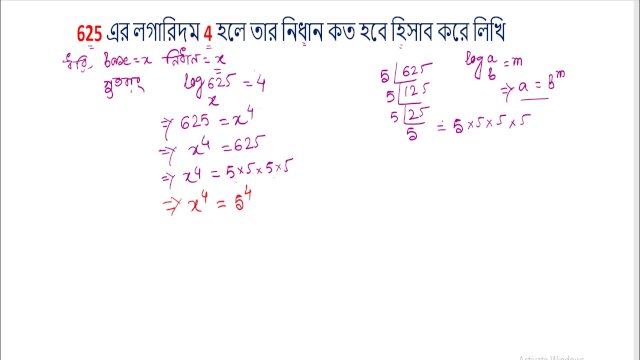 625 এর লগারিদম 4 হলে তার নিধান কত হবে হিসাব করে লিখি
ধরি, base = x নিধান = x
সুতরাং log_x 625 = 4
⇒ 625 = x⁴
⇒ x⁴ = 625
⇒ x⁴ = 5×5×5×5
⇒ x⁴ = 5⁴
5 | 625
5 | 125
5 | 25
5 = 5×5×5×5
log_b a = m
⇒ a = b^m